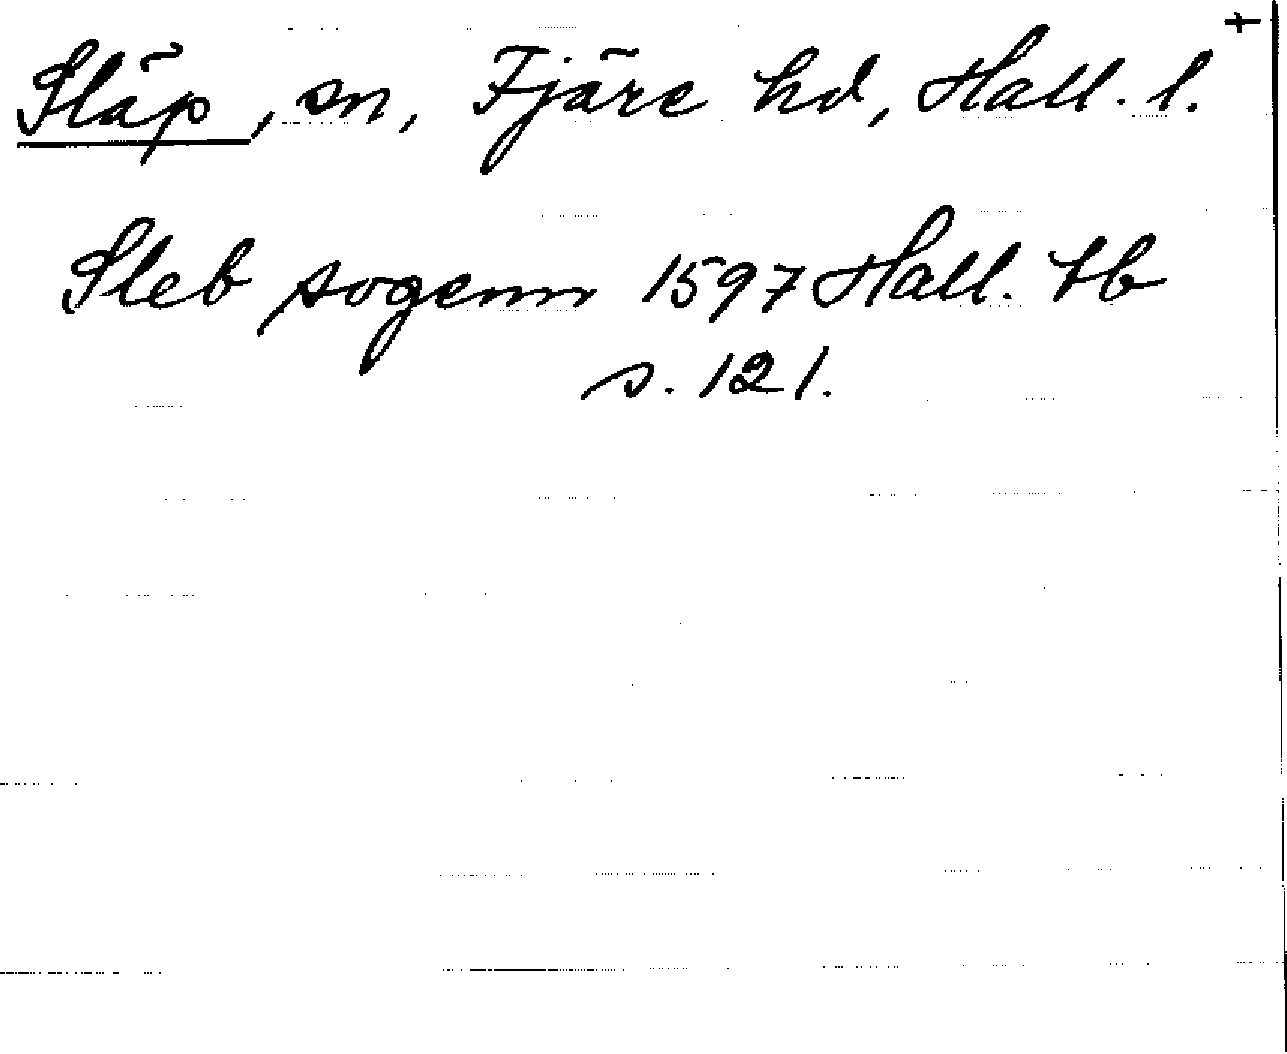 Släp, sn, Fjäre hd, Hall. l. +
Sleb sogenn 1597 Hall. tb
s. 121.